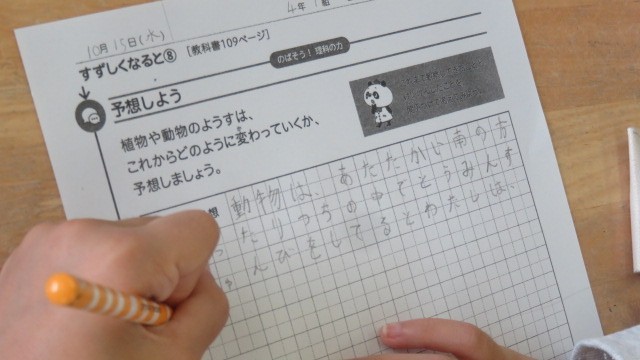 10月15日(水)
4年 1組
すずしくなると⑧ [教科書109ページ]
のばそう! 理科の力
予想しよう
植物や動物のようすは、
これからどのように変わっていくか、
予想しましょう。
想
動物は、あたたかい南の方
たりつちの中でとうみんす
んびをしてるとわたしは、